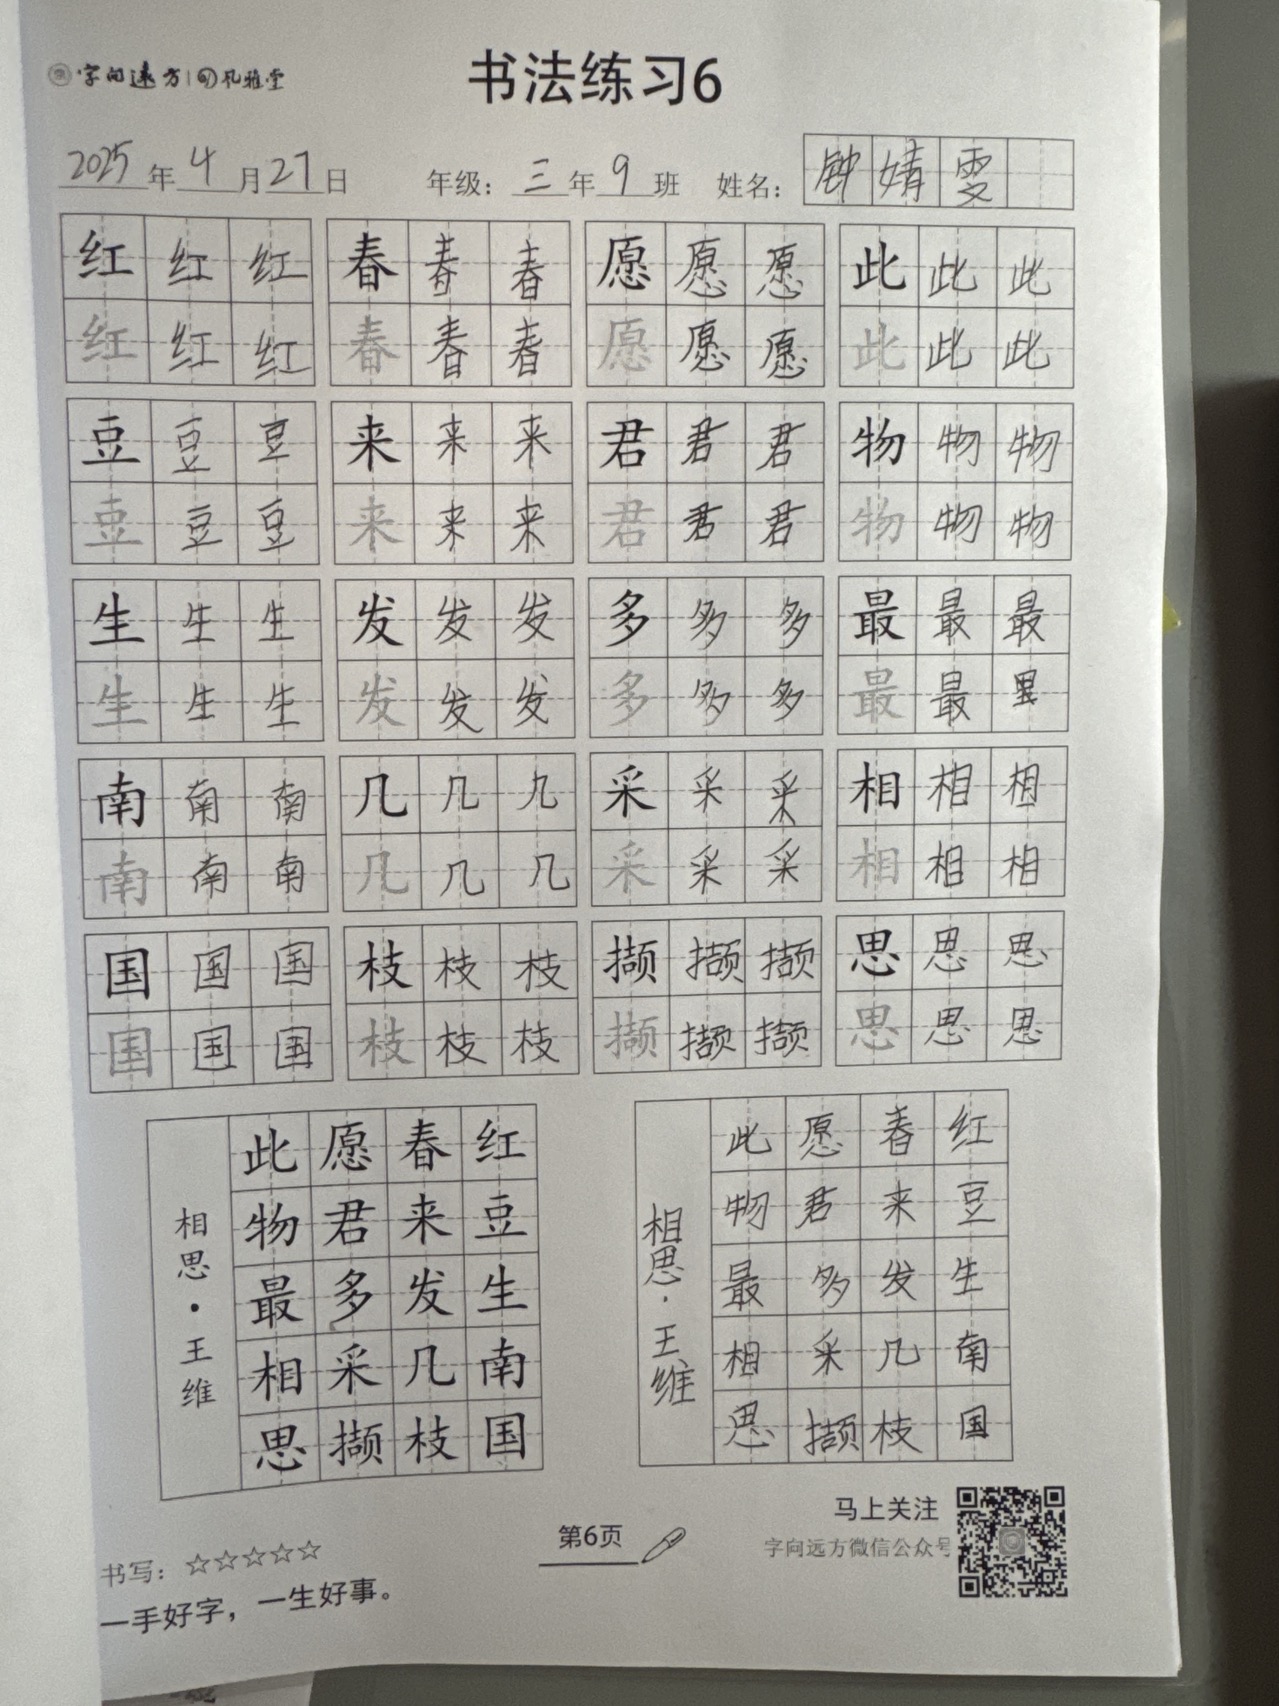 字向远方 孔雅堂
书法练习6
2025年4月27日 年级：三年9班 姓名：钟婧雯
红红红 春春春 愿愿愿 此此此
红红红 春春春 愿愿愿 此此此
豆豆豆 来来来 君君君 物物物
豆豆豆 来来来 君君君 物物物
生生生 发发发 多多多 最最最
生生生 发发发 多多多 最最
南南南 几几几 采采采 相相相
南南南 几几几 采采采 相相相
国国国 枝枝枝 撷撷撷 思思思
国国国 枝枝枝 撷撷撷 思思思
红豆生南国
春来发几枝
愿君多采撷
此物最相思
相思·王维
红豆生南国
春来发几枝
愿君多采撷
此物最相思
相思·王维
书写：☆☆☆☆☆
一手好字，一生好事。
第6页
马上关注
字向远方微信公众号